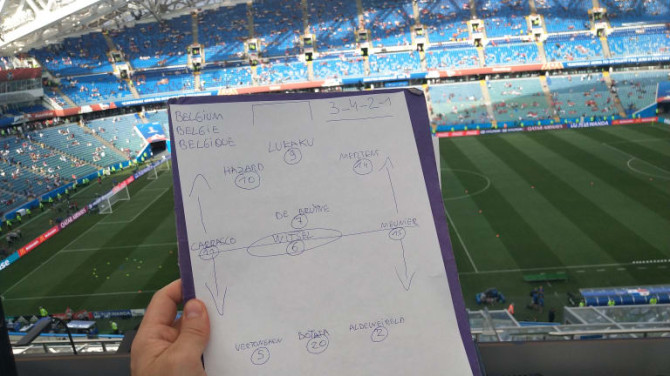 BELGIUM
BELGIE
BELGIQUE
3-4-2-1
LUKAKU
9
HAZARD
10
MERTENS
14
DE BRUYNE
7
CARRASCO
11
WITSEL
6
MEUNIER
15
VERTONGHEN
5
BOYATA
20
ALDERWEIRELD
2
QATAR AIRWAYS
WANDA